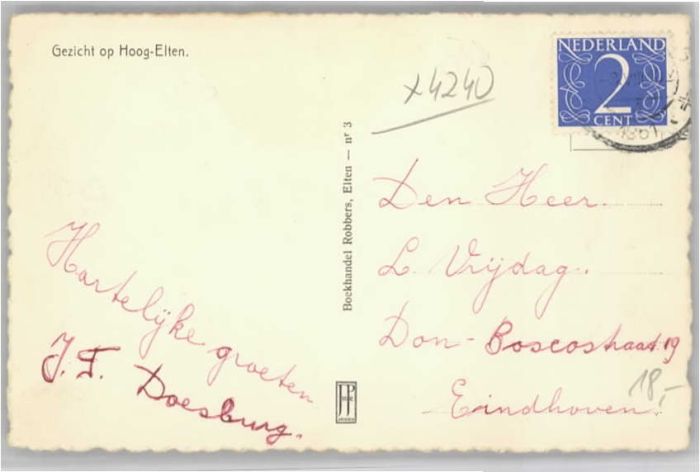 Gezicht op Hoog-Elten.
x4240
NEDERLAND
2
CENT
Boekhandel Robbers, Elten — nr 3
Den Heer.
L. Vrijdag.
Don-Boscostraat 19
Eindhoven.
18,-
Hartelijke groeten
J. F. Doesburg.
JP